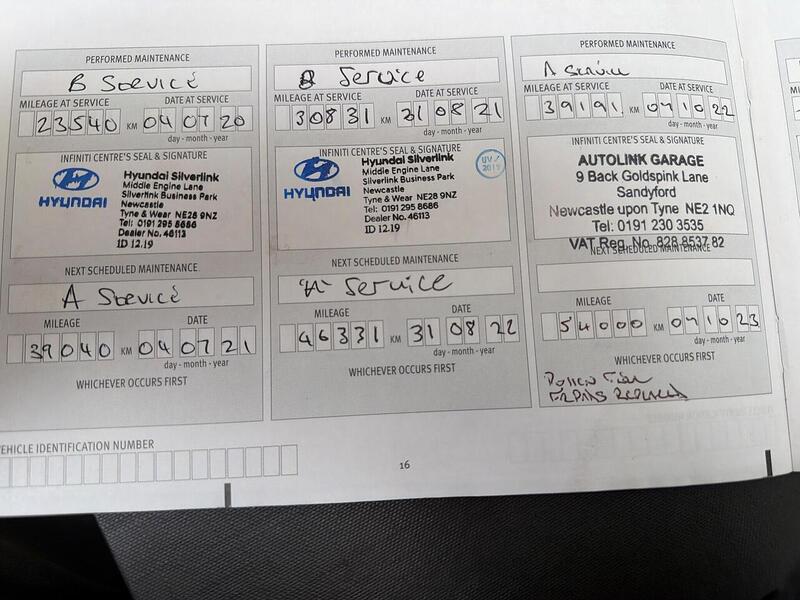 PERFORMED MAINTENANCE
B Service
MILEAGE AT SERVICE DATE AT SERVICE
23540 KM 04 07 20
day - month - year
INFINITI CENTRE'S SEAL & SIGNATURE
HYUNDAI
Hyundai Silverlink
Middle Engine Lane
Silverlink Business Park
Newcastle
Tyne & Wear NE28 9NZ
Tel: 0191 295 8686
Dealer No. 46113
ID 12.19
NEXT SCHEDULED MAINTENANCE
A Service
MILEAGE DATE
39040 KM 04 07 21
day - month - year
WHICHEVER OCCURS FIRST
VEHICLE IDENTIFICATION NUMBER
PERFORMED MAINTENANCE
Service
MILEAGE AT SERVICE DATE AT SERVICE
30831 KM 31 08 21
day - month - year
INFINITI CENTRE'S SEAL & SIGNATURE
HYUNDAI
Hyundai Silverlink
Middle Engine Lane
Silverlink Business Park
Newcastle
Tyne & Wear NE28 9NZ
Tel: 0191 295 8686
Dealer No. 46113
ID 12.19
NEXT SCHEDULED MAINTENANCE
"A" Service
MILEAGE DATE
46331 KM 31 08 22
day - month - year
WHICHEVER OCCURS FIRST
16
PERFORMED MAINTENANCE
A Service
MILEAGE AT SERVICE DATE AT SERVICE
39191 KM 04 10 22
day - month - year
INFINITI CENTRE'S SEAL & SIGNATURE
AUTOLINK GARAGE
9 Back Goldspink Lane
Sandyford
Newcastle upon Tyne NE2 1NQ
Tel: 0191 230 3535
VAT Reg. No. 828 8537 82
NEXT SCHEDULED MAINTENANCE
MILEAGE DATE
54000 KM 04 10 23
day - month - year
WHICHEVER OCCURS FIRST
Pollen